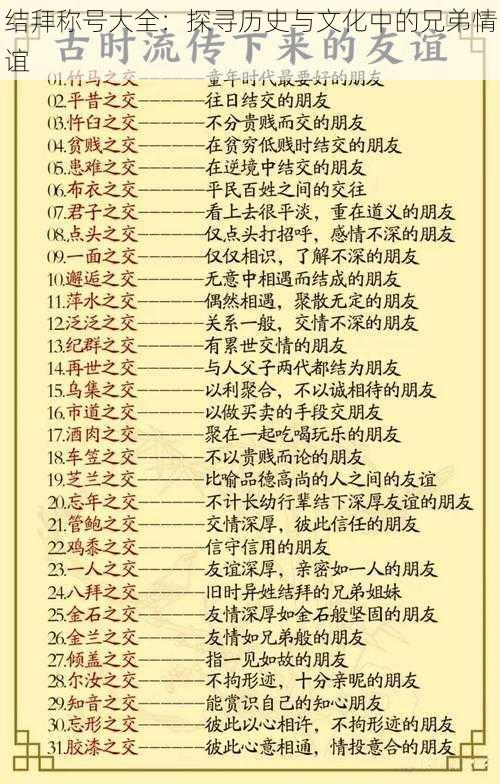 结拜称号大全：探寻历史与文化中的兄弟情
谊
古时流传下来的友谊
01.竹马之交———童年时代最要好的朋友
02.平昔之交———往日结交的朋友
03.忤臼之交———不分贵贱而交的朋友
04.贫贱之交———在贫穷低贱时结交的朋友
05.患难之交———在逆境中结交的朋友
06.布衣之交———平民百姓之间的交往
07.君子之交———看上去很平淡，重在道义的朋友
08.点头之交———仅点头打招呼，感情不深的朋友
09.一面之交———仅仅相识，了解不深的朋友
10.邂逅之交———无意中相遇而结成的朋友
11.萍水之交———偶然相遇，聚散无定的朋友
12.泛泛之交———关系一般，交情不深的朋友
13.纪群之交———有累世交情的朋友
14.再世之交———与人父子两代都结为朋友
15.乌集之交———以利聚合，不以诚相待的朋友
16.市道之交———以做买卖的手段交朋友
17.酒肉之交———聚在一起吃喝玩乐的朋友
18.车笠之交———不以贵贱而论的朋友
19.芝兰之交———比喻品德高尚的人之间的友谊
20.忘年之交———不计长幼行辈结下深厚友谊的朋友
21.管鲍之交———交情深厚，彼此信任的朋友
22.鸡黍之交———信守信用的朋友
23.一人之交———友谊深厚，亲密如一人的朋友
24.八拜之交———旧时异姓结拜的兄弟姐妹
25.金石之交———友情深厚如金石般坚固的朋友
26.金兰之交———友情如兄弟般的朋友
27.倾盖之交———指一见如故的朋友
28.尔汝之交———不拘形迹，十分亲昵的朋友
29.知音之交———能赏识自己的知心朋友
30.忘形之交———彼此以心相许，不拘形迹的朋友
31.胶漆之交———彼此心意相通，情投意合的朋友